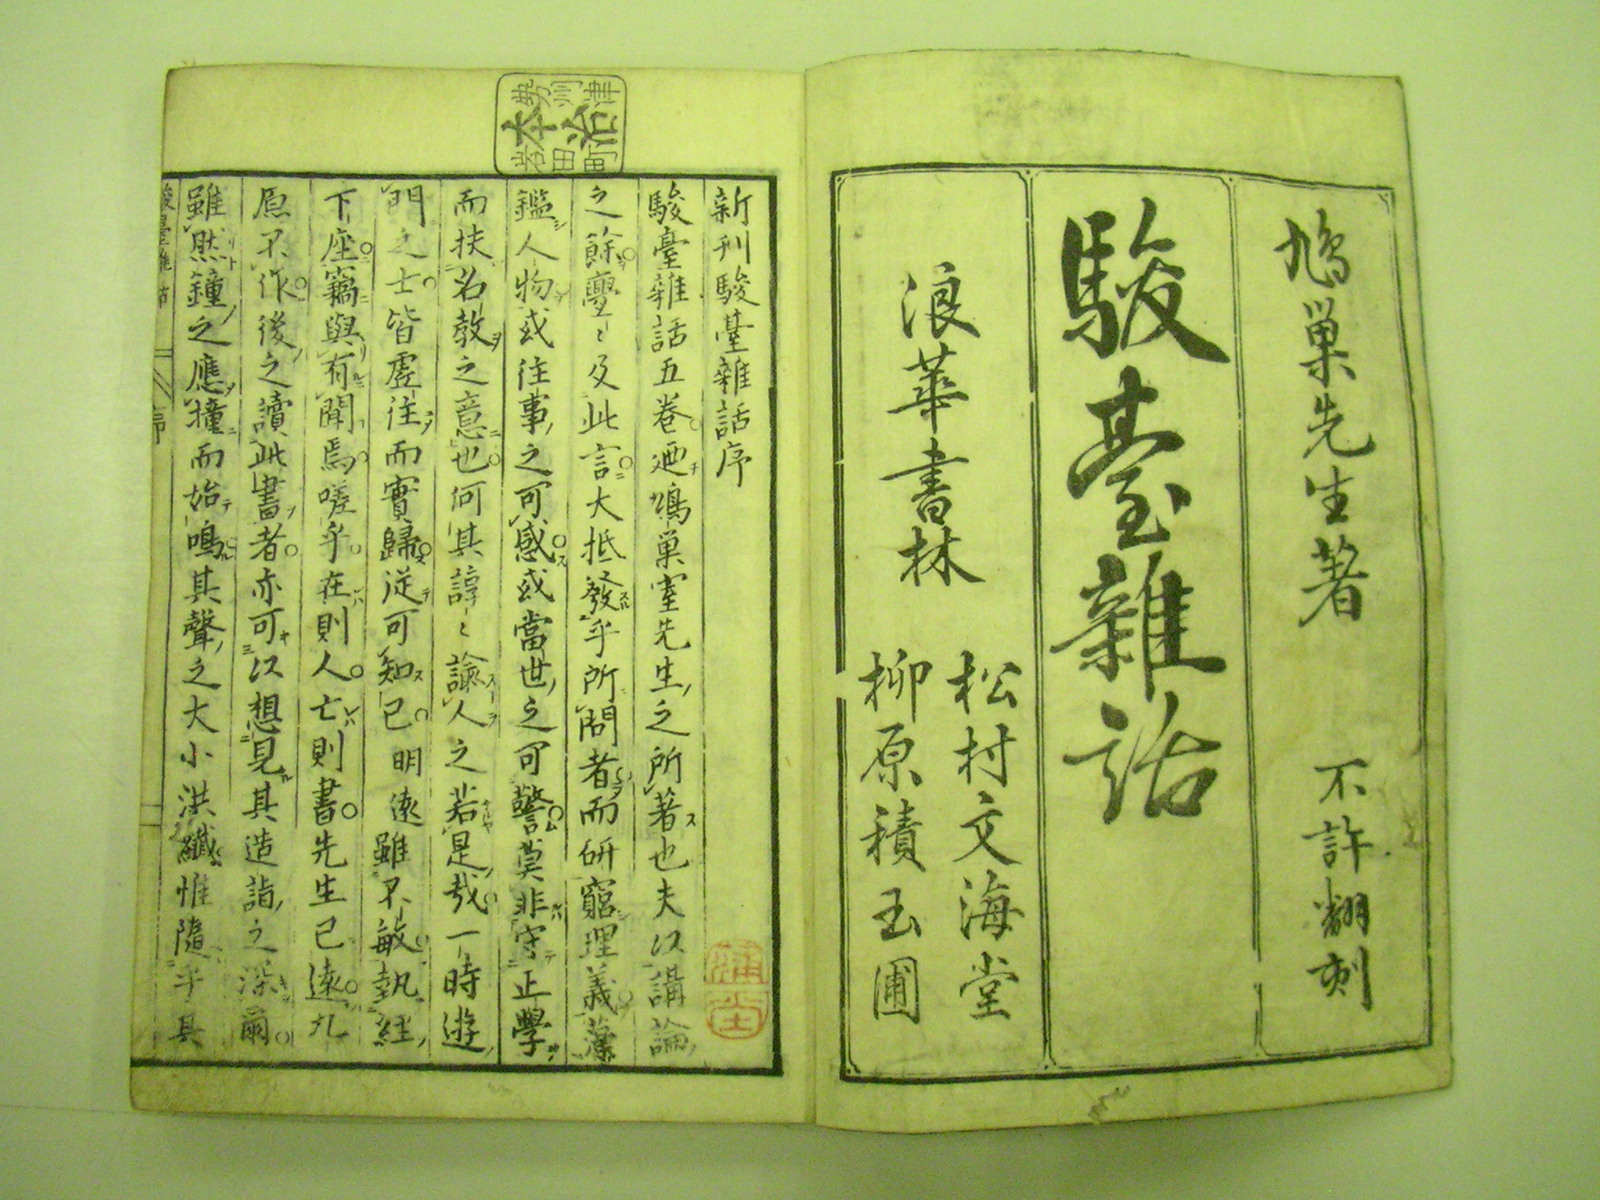 鳩巣先生著　不許翻刻
駿臺雜話
浪華書林　松村文海堂
柳原積玉圃
勢州津
本 治
岩田町
新刊駿臺雜話序
駿臺雜話五卷廼鳩巣室先生之所著也夫以講論
之餘亹〻及此言大抵發乎所問者而研窮理義藻
鑑人物或往事之可感或當世之可警莫非守正學
而扶名教之意也何其諄〻諭人之若是哉一時遊
門之士皆虛往而實歸從可知已明遠雖不敏執經
下座竊與有聞焉嗟乎在則人亡則書先生已遠九
原不作後之讀此書者亦可以想見其造詣之深爾
雖然鐘之應撞而始鳴其聲之大小洪纖惟隨乎其
駿臺雜話　序